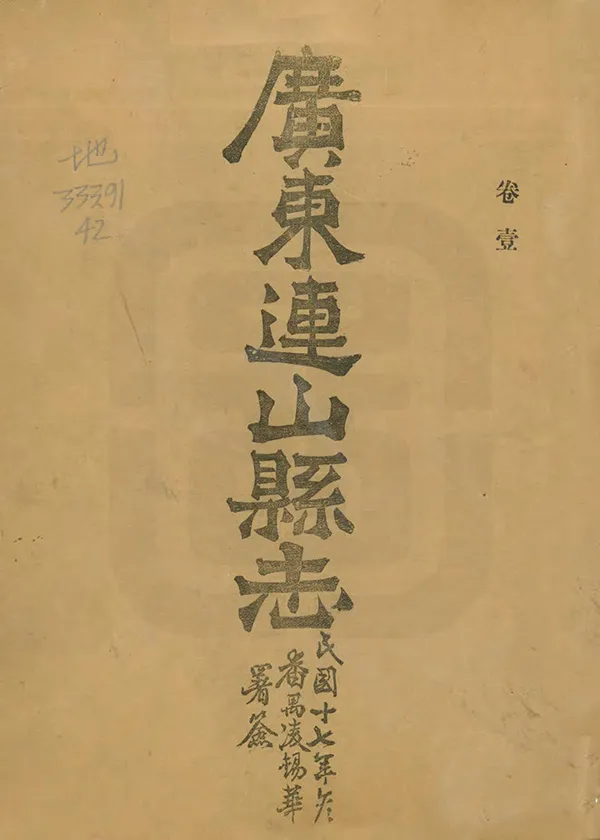 卷壹
廣東連山縣志
民國十七年冬
番禺凌錫華
署簽
地
33391
42